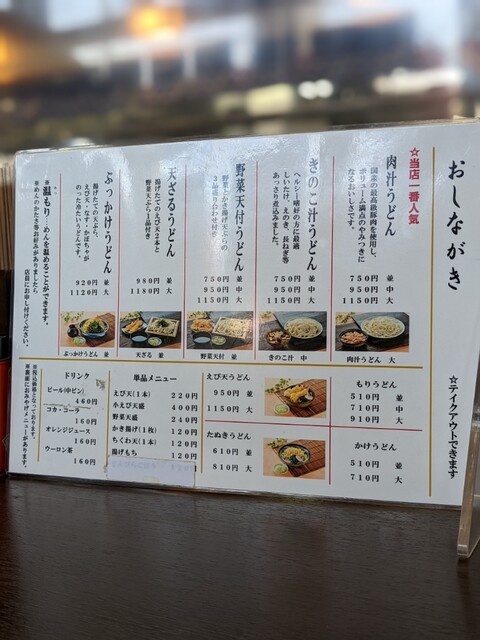 おしながき
☆テイクアウトできます
☆当店一番人気
肉汁うどん
国産の最高級豚肉を使用し、
ボリューム満点のやみつきに
なるおいしさです。
750円 並
950円 中
1150円 大
肉汁うどん 大
きのこ汁うどん
ヘルシー嗜好の方に最適
しいたけ、えのき、長ねぎ等
あっさり煮込みました。
750円 並
950円 中
1150円 大
きのこ汁 中
野菜天付・うどん
野菜とかき揚げ天ぷらの
3品盛り合わせ付き
750円 並
950円 中
1150円 大
野菜天付 並
天ざるうどん
揚げたてのえび天2本と
野菜天ぷら1品付き
980円 並
1180円 大
天ざる 並
ぶっかけうどん
揚げたての天ぷら、
えび天・なす・かぼちゃが
のった冷たいうどんです。
920円 並
1120円 大
ぶっかけうどん 並
※温もり…めんを温めることができます。
※めんのかたさ等お好みがありましたら
店員にお申し付けください。
もりうどん
510円 並
710円 中
910円 大
かけうどん
510円 並
710円 大
えび天うどん
950円 並
1150円 大
たぬきうどん
610円 並
810円 大
単品メニュー
えび天(1本) 220円
小えび天盛 400円
野菜天盛 240円
かき揚げ(1枚) 120円
ちくわ天(1本) 120円
揚げもち 120円
ドリンク
ビール(中ビン)
460円
コカ・コーラ
160円
オレンジジュース
160円
ウーロン茶
160円
※税込価格となっております。
※裏面におみやげメニューがあります。